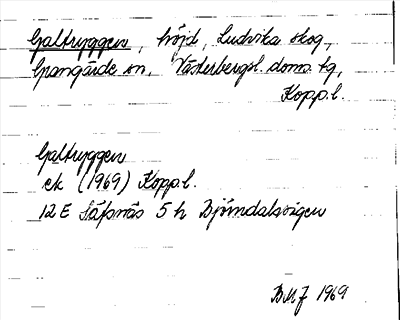 Galtryggen, höjd, Ludvika skog,
Grangärde sn, Västerbergsl. doms. tg,
Kopp.l.
Galtryggen
ek (1969) Kopp.l.
12 E Säfsnäs 5 h Björndalsvägen
BMJ 1969